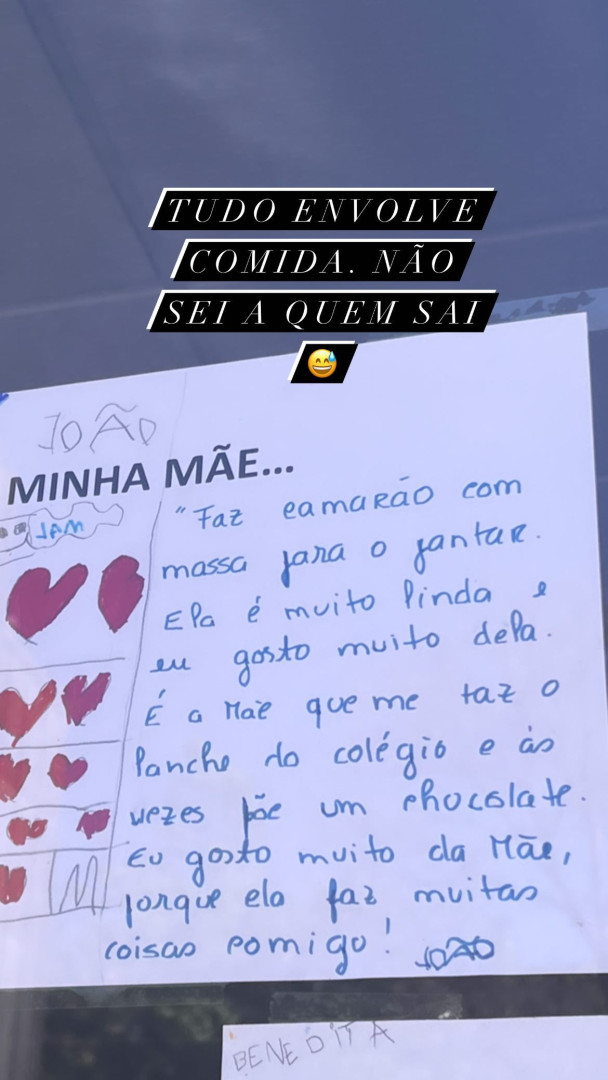 TUDO ENVOLVE
COMIDA. NÃO
SEI A QUEM SAI
😅
JOÃO
MINHA MÃE...
JAM
"Faz camarão com
massa para o jantar.
Ela é muito linda e
eu gosto muito dela.
É a Mãe que me faz o
lanche do colégio e às
vezes põe um chocolate.
Eu gosto muito da Mãe,
porque ela faz muitas
coisas comigo!
JOÃO
M
BENEDITA